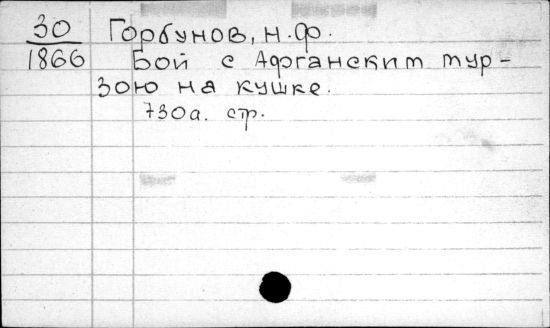 30
1866
Горбунов, н.ф.
Бой с Афганским тур-
зою на кушке.
730а. стр.